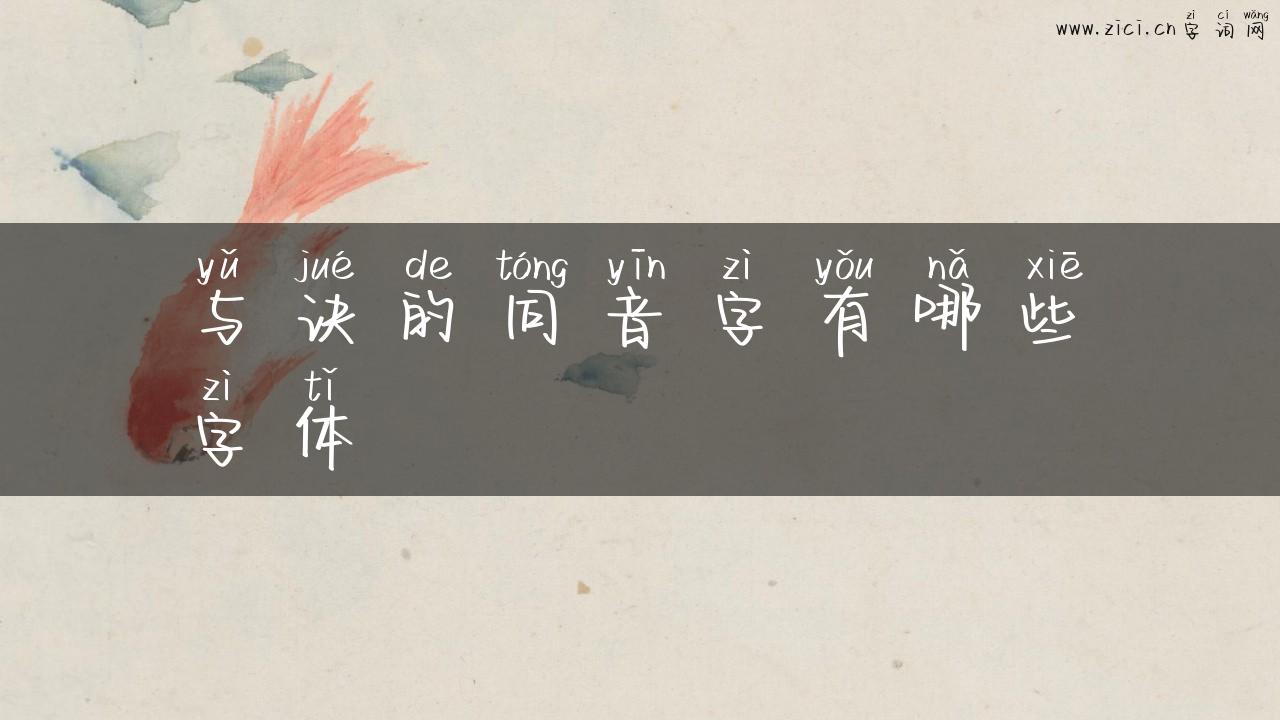 zì cí wǎng
www.zici.cn 字词网
yǔ jué de tóng yīn zì yǒu nǎ xiē
与诀的同音字有哪些
zì tǐ
字体